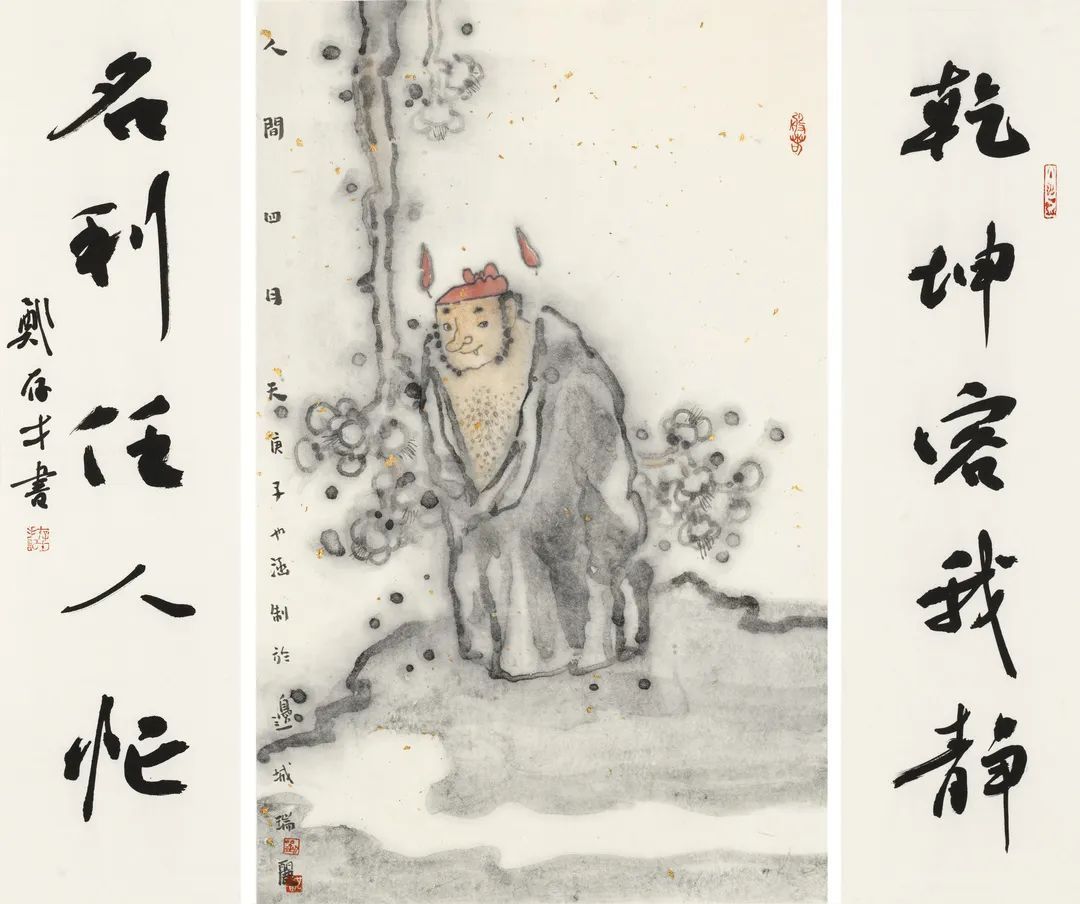 乾坤容我静
名利任人忙
鄭存才書
人間四月天庚子也涵制於邊城瑞麗